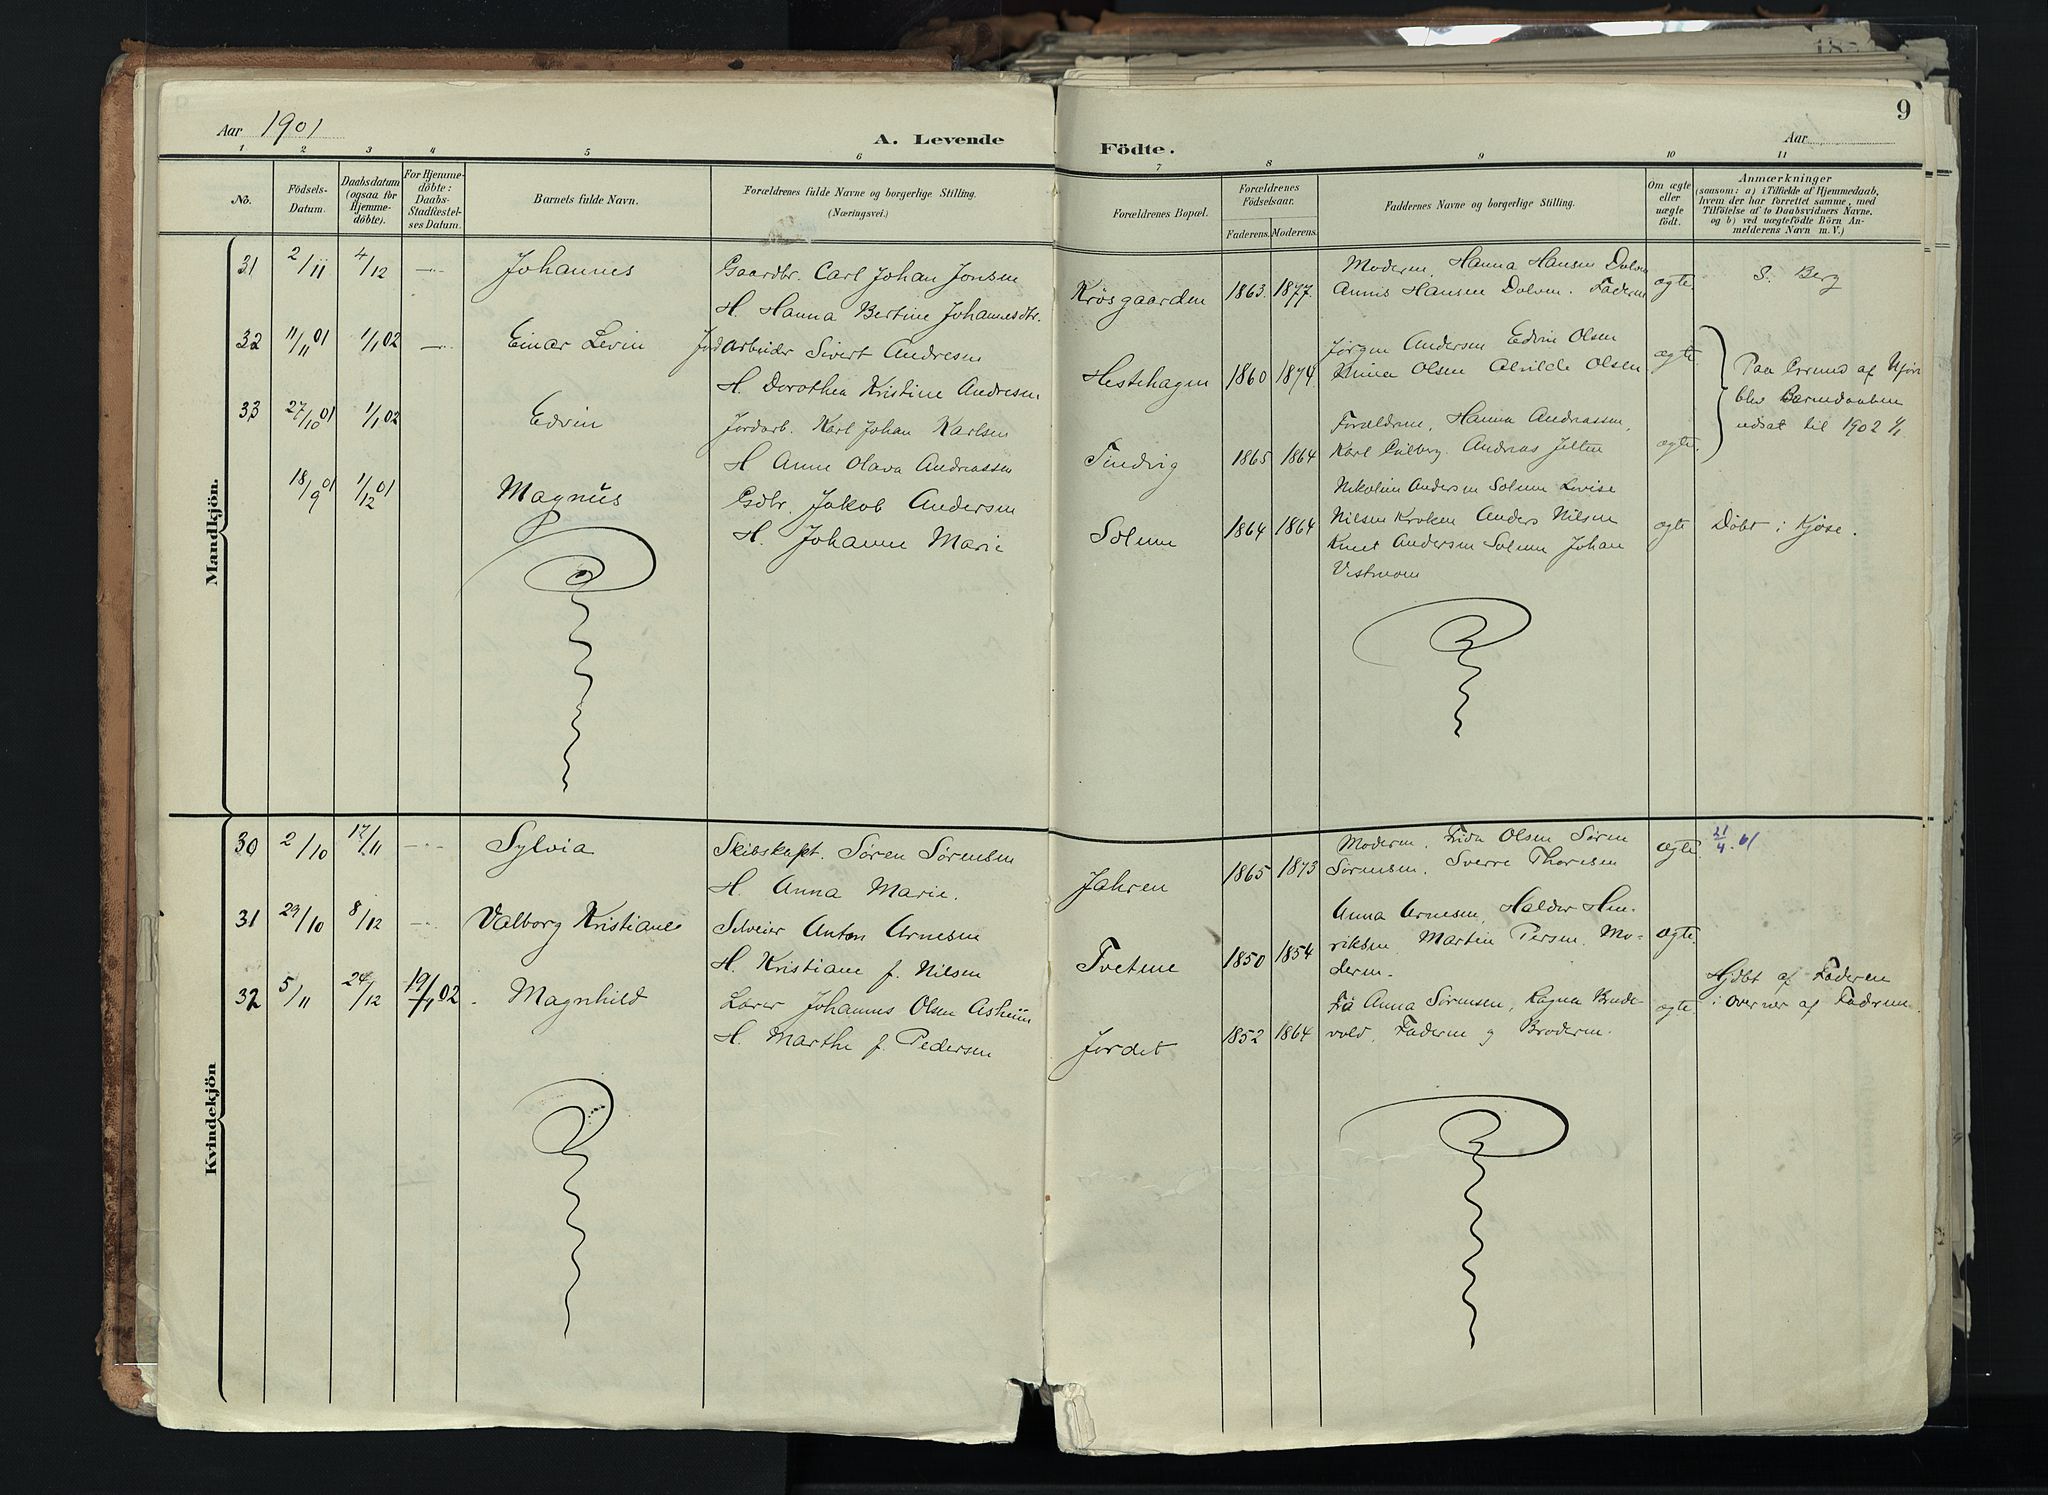 9
Aar 1901
A. Levende
Födte.
Aar
1 2 3 4 5 6 7 8 9 10 11
No.
Födsels-
Datum.
Daabsdatum
(ogsaa for
Hjemme-
döbte).
For Hjemme-
döbte:
Daabs-
Stadfæstel-
ses Datum.
Barnets fulde Navn.
Forældrenes fulde Navne og borgerlige Stilling.
(Næringsvei.)
Forældrenes Bopæl.
Forældrenes
Födselsaar.
Faderens. Moderens.
Faddernes Navne og borgerlige Stilling.
Om ægte
eller
uægte
födt.
Anmærkninger
(saasom: a) i Tilfælde af Hjemmedaab,
hvem der har forrettet samme, med
Tilföielse af to Daabsvidners Navne.
og b) ved uægtefödte Börn An-
melderens Navn m. V.)
Mandkjön.
31 2/11 4/12 Johannes Gaardbr. Carl Johan Jonsen
H. Hanna Bertine Johannesdtr.
Krøsgaarden 1863. 1877.
Moderen, Hanna Hansen Dolven
Annis Hansen Dolven. Faderen
ægte
S. Berg
32 11/11 01 1/1 02 Einar Levin Jordarbeider Sivert Andresen
H. Dorothea Kristine Andresen
Hestehagen 1860 1874
Jørgen Andersen Edvin Olsen
Olsen Alvilde Olsen
ægte.
Paa Grund af
blev Barnedaaben
udsat til 1902 1/1
33 27/10 01 1/1 02 Edvin Jordarb. Karl Johan Karlsen
H Anne Olava Andreassen
Tindvig 1865 1864
Forældrene, Hanna Andreassen,
Karl Andreas
ægte.
18/9 01 1/12 01 Magnus Gdbr. Jakob Andersen
H. Johanne Marie
Solum 1864 1864
Nikoline Andersen Solum Lovise
Nilsen Kroken Anders Nilsen
Knut Andersen Solum Johan
Vestmoen
ægte
Döbt i Kjöse.
Kvindekjön
30 2/10 17/11 Sylvia Skibskapt. Søren Sørensen
H. Anna Marie.
Jahren 1865 1873
Moderen. Frida Olsen Søren
Sørensen. Sverre Thoresen
ægte.
21/4. 61
31 29/10 8/12 Valborg Kristiane Selveier Anton Arnesen
H. Kristiane f. Nilsen
Tvetene 1850 1854
Anna Arnesen, Halder Hen-
riksen Martin Persen. Mo-
deren.
ægte.
32 5/11 24/12 19/1 02 Magnhild Lærer Johannes Olsen Asheim
H. Marthe f. Pedersen
Jordet 1852 1864
Frk Anna Sørensen, Ragna Bude-
vold, Faderen og Broderen.
ægte.
Hjdbt af Faderen
i overvær af Faderen.